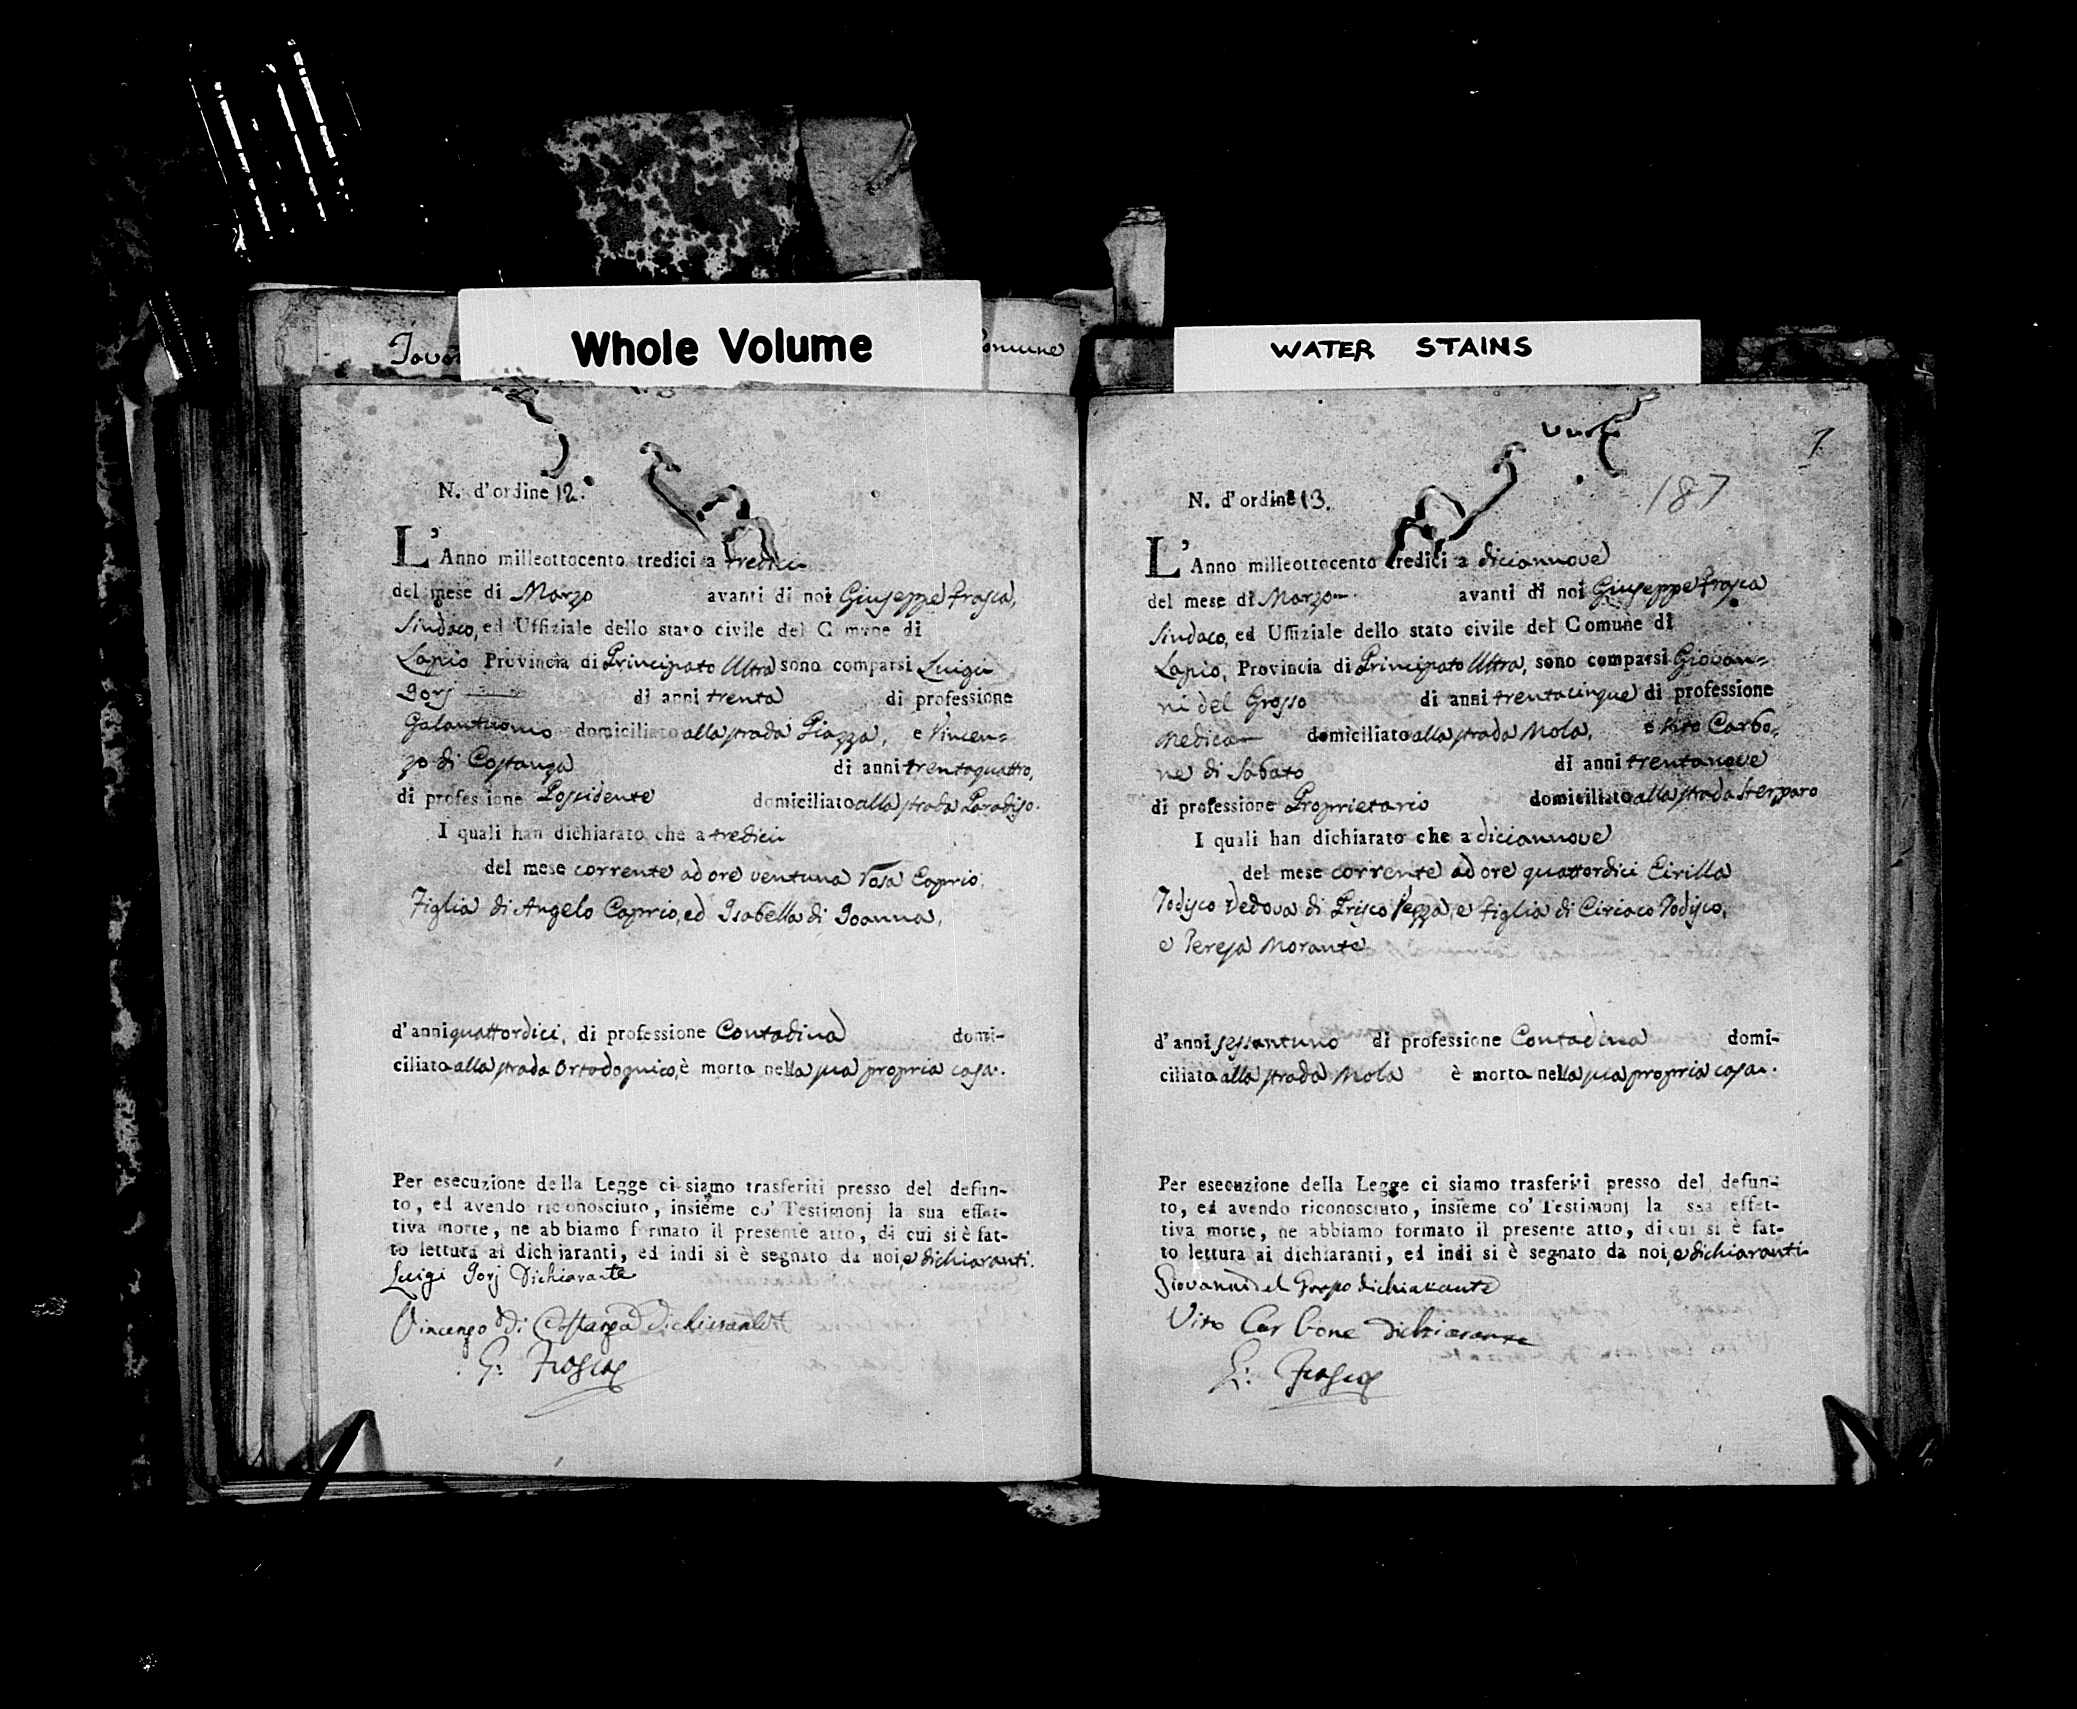 Whole Volume
WATER STAINS
N. d'ordine 12.
L'Anno milleottocento tredici a tredici
del mese di Marzo avanti di noi Giuseppe Frasca,
Sindaco, ed Uffiziale dello stato civile del Comune di
Lapio Provincia di Principato Ultra sono comparsi Luigi
Iorj di anni trenta di professione
Galantuomo domiciliato alla strada Piazza, e Vincen=
zo di Costanza di anni trentaquattro,
di professione Possidente domiciliato alla strada Paradiso.
I quali han dichiarato che a tredici
del mese corrente ad ore ventuna Rosa Caprio,
Figlia di Angelo Caprio, ed Isabella di Ioanna,
d'anni quattordici, di professione Contadina domi-
ciliata alla strada Ortodoguico, è morta nella sua propria casa.
Per esecuzione della Legge ci siamo trasferiti presso del defun-
to, ed avendo riconosciuto, insieme co' Testimonj la sua effet-
tiva morte, ne abbiamo formato il presente atto, di cui si è fat-
to lettura ai dichiaranti, ed indi si è segnato da noi, e dichiaranti.
Luigi Iorj Dichiarante
Vincenzo di Costanza Dichiarante
G: Frasca
7
187
N. d'ordine 13.
L'Anno milleottocento tredici a diciannove
del mese di Marzo avanti di noi Giuseppe Frasca
Sindaco, ed Uffiziale dello stato civile del Comune di
Lapio, Provincia di Principato Ultra, sono comparsi Giovan=
ni del Grosso di anni trentacinque di professione
Medico domiciliato alla strada Mola, e Vito Carbo=
ne di Sabato di anni trentanove
di professione Proprietario domiciliato alla strada Sterparo
I quali han dichiarato che a diciannove
del mese corrente ad ore quattordici Cirilla
Todisco Vedova di Prisco Pezza, e figlia di Ciriaco Todisco,
e Teresa Morante
d'anni sessantuno di professione Contadina domi-
ciliata alla strada Mola è morta nella sua propria casa.
Per esecuzione della Legge ci siamo trasferiti presso del defun-
to, ed avendo riconosciuto, insieme co' Testimonj la ssa effet-
tiva morte, ne abbiamo formato il presente atto, di cui si è fat-
to lettura ai dichiaranti, ed indi si è segnato da noi, e dichiaranti.
Giovanni del Grosso dichiarante
Vito Carbone Dichiarante
G: Frasca